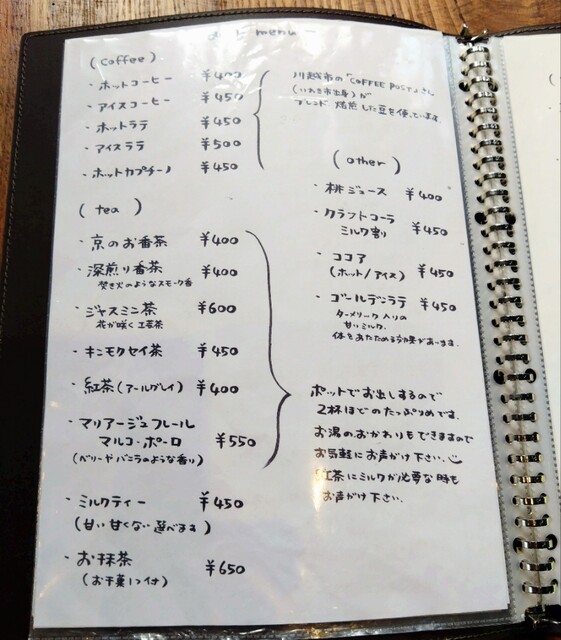 menu
(coffee)
・ホットコーヒー ¥400
・アイスコーヒー ¥450
・ホットラテ ¥450
・アイスラテ ¥500
・ホットカプチーノ ¥450
川越市の「COFFEE POST」さん
(いわき市出身)が
ブレンド 焙煎した豆を使っています
(tea)
・京のお番茶 ¥400
・深煎り番茶 ¥400
焚き火のようなスモーク香
・ジャスミン茶 ¥600
花が咲く工芸茶
・キンモクセイ茶 ¥450
・紅茶(アールグレイ) ¥400
・マリアージュフレール
マルコ・ポーロ ¥550
(ベリーやバニラのような香り)
ポットでお出しするので
2杯ほどのたっぷりめです。
お湯のおかわりもできますので
お気軽にお声がけ下さい。
紅茶にミルクが必要な時も
お声がけ下さい。
・ミルクティー ¥450
(甘い 甘くない 選べます)
・お抹茶 ¥650
(お干菓子つき)
(other)
・桃ジュース ¥400
・クラフトコーラ
ミルク割り ¥450
・ココア
(ホット/アイス) ¥450
・ゴールデンラテ ¥450
ターメリック入りの
甘いミルク。
体をあたためる効果があります。